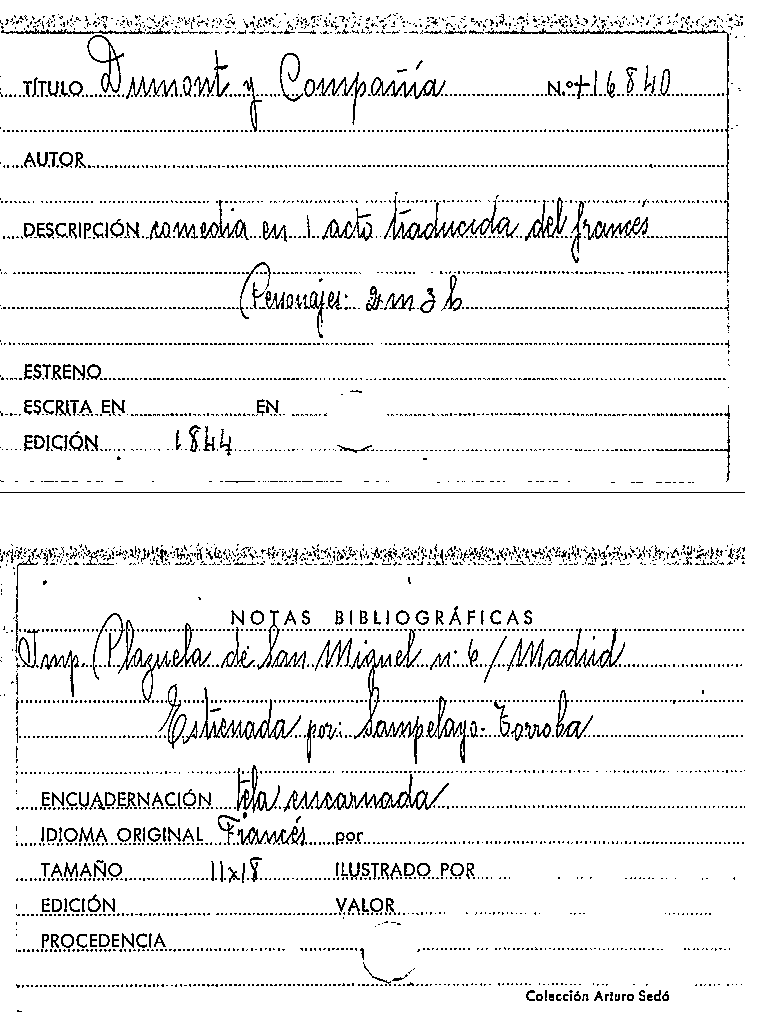 TÍTULO Dumont y Compañía N.º +16840
AUTOR
DESCRIPCIÓN comedia en 1 acto traducida del francés
Personajes: 2 m 3 h
ESTRENO
ESCRITA EN EN
EDICIÓN 1844
NOTAS BIBLIOGRÁFICAS
Imp. Plazuela de San Miguel n: 6 / Madrid
Estrenada por: Sampelayo - Torroba
ENCUADERNACIÓN tela encarnada
IDIOMA ORIGINAL Francés por
TAMAÑO 11x18 ILUSTRADO POR
EDICIÓN VALOR
PROCEDENCIA
Colección Arturo Sedó